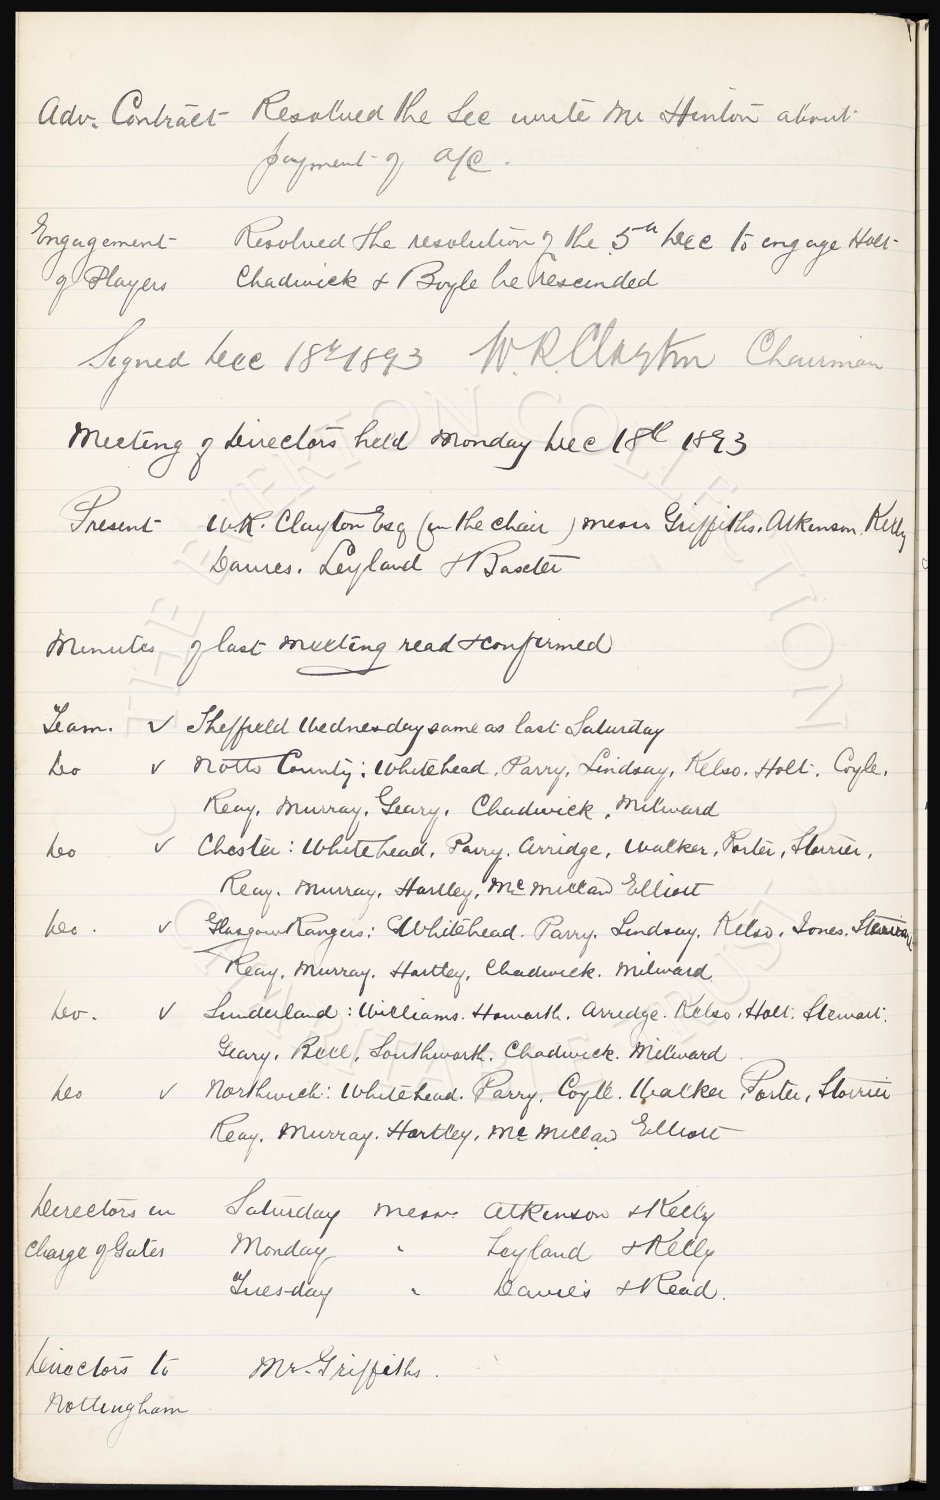 Adv. Contract Resolved the Sec write Mr Hinton about
payment of a/c.
Engagement Resolved the resolution of the 5th Dec to engage Holt
of Players Chadwick & Boyle be rescinded
Signed Dec 18th 1893 W. R. Clayton Chairman
Meeting of Directors held Monday Dec 18th 1893
Present W.R. Clayton Esq (in the chair) Messrs Griffiths, Atkinson, Kelly
Davies, Leyland & Baxter
Minutes of last meeting read & confirmed
Team. v Sheffield Wednesday same as last Saturday
Do v Notts County: Whitehead, Parry, Lindsay, Kelso, Holt, Coyle,
Reay, Murray, Geary, Chadwick, Milward
Do v Chester: Whitehead, Parry, Arridge, Walker, Porter, Storrier,
Reay, Murray, Hartley, McMillan Elliott
Do. v Glasgow Rangers: Whitehead. Parry. Lindsay. Kelso, Jones, Stewart
Reay, Murray, Hartley, Chadwick. Milward
Do. v Sunderland: Williams. Howarth. Arridge. Kelso. Holt. Stewart.
Geary, Bell, Southworth, Chadwick. Milward
Do v Northwich: Whitehead. Parry, Coyle. Walker Porter, Storrier
Reay, Murray. Hartley, McMillan Elliott
Directors in Saturday Messrs Atkinson & Kelly
Charge of Gates Monday " Leyland & Kelly
Tuesday " Davies & Read.
Directors to Mr. Griffiths.
Nottingham
THE EVERTON COLLECTION
CHARITABLE TRUST